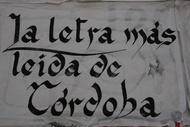 La letra más
leída de
Córdoba